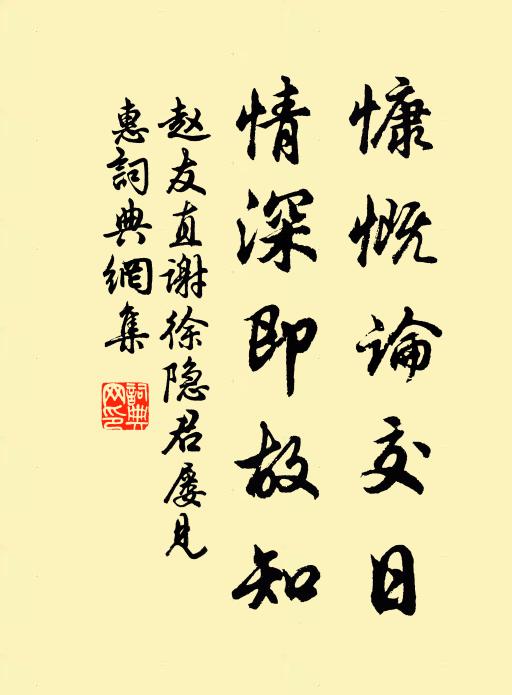 慷慨論交日
情深即故知
赵友直谢徐隐君屡见
惠詞典網集
詞典網印